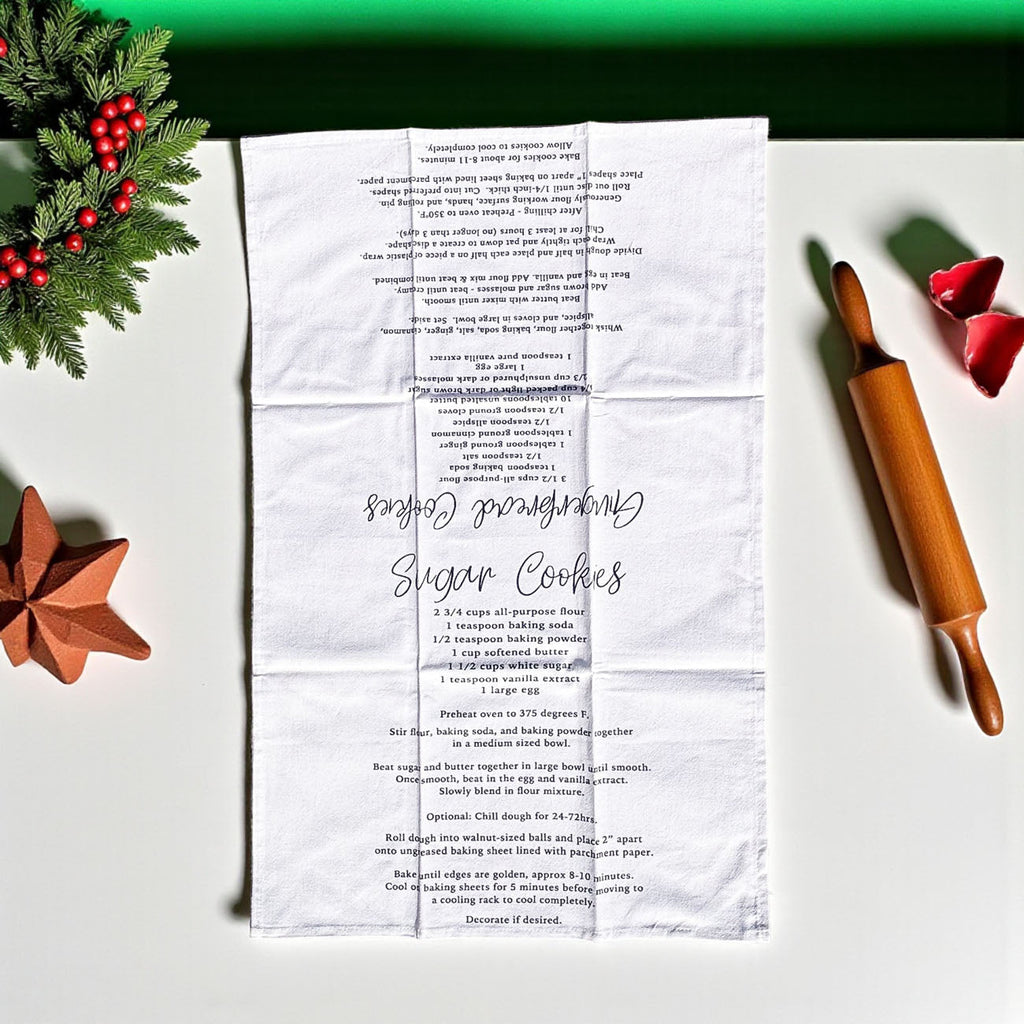 Gingerbread Cookies
3 1/2 cups all-purpose flour
1 teaspoon baking soda
1/2 teaspoon salt
1 tablespoon ground ginger
1 tablespoon ground cinnamon
1/2 teaspoon allspice
1/2 teaspoon ground cloves
10 tablespoons unsalted butter
cup packed light or dark brown sugar
2/3 cup unsulphured or dark molasses
1 large egg
1 teaspoon pure vanilla extract
Whisk together flour, baking soda, salt, ginger, cinnamon,
allspice, and cloves in large bowl. Set aside.
Beat butter with mixer until smooth.
Add brown sugar and molasses - beat until creamy.
Beat in egg and vanilla. Add flour mix & beat until combined.
Divide dough in half and place each half on a piece of plastic wrap.
Wrap each tightly and pat down to create a disc shape.
Chill for at least 3 hours (no longer than 3 days).
After chilling - Preheat to oven to 350°F.
Generously flour working surface, hands, and rolling pin.
Roll out disc until 1/4-inch thick. Cut into preferred shapes.
Place shapes 1" apart on baking sheet lined with parchment paper.
Bake cookies for about 8-11 minutes.
Allow cookies to cool completely.
Sugar Cookies
2 3/4 cups all-purpose flour
1 teaspoon baking soda
1/2 teaspoon baking powder
1 cup softened butter
1 1/2 cups white sugar
1 teaspoon vanilla extract
1 large egg
Preheat oven to 375 degrees F.
Stir flour, baking soda, and baking powder together
in a medium sized bowl.
Beat sugar and butter together in large bowl until smooth.
Once smooth, beat in the egg and vanilla extract.
Slowly blend in flour mixture.
Optional: Chill dough for 24-72hrs.
Roll dough into walnut-sized balls and place 2" apart
onto ungreased baking sheet lined with parchment paper.
Bake until edges are golden, approx 8-10 minutes.
Cool on baking sheets for 5 minutes before moving to
a cooling rack to cool completely.
Decorate if desired.